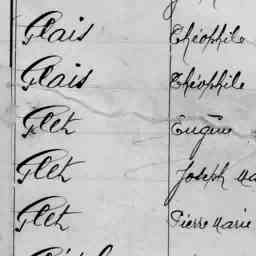 Glais Théophile
Glais Théophile
Glet Eugène
Glet Joseph Ma
Glet Pierre Marie